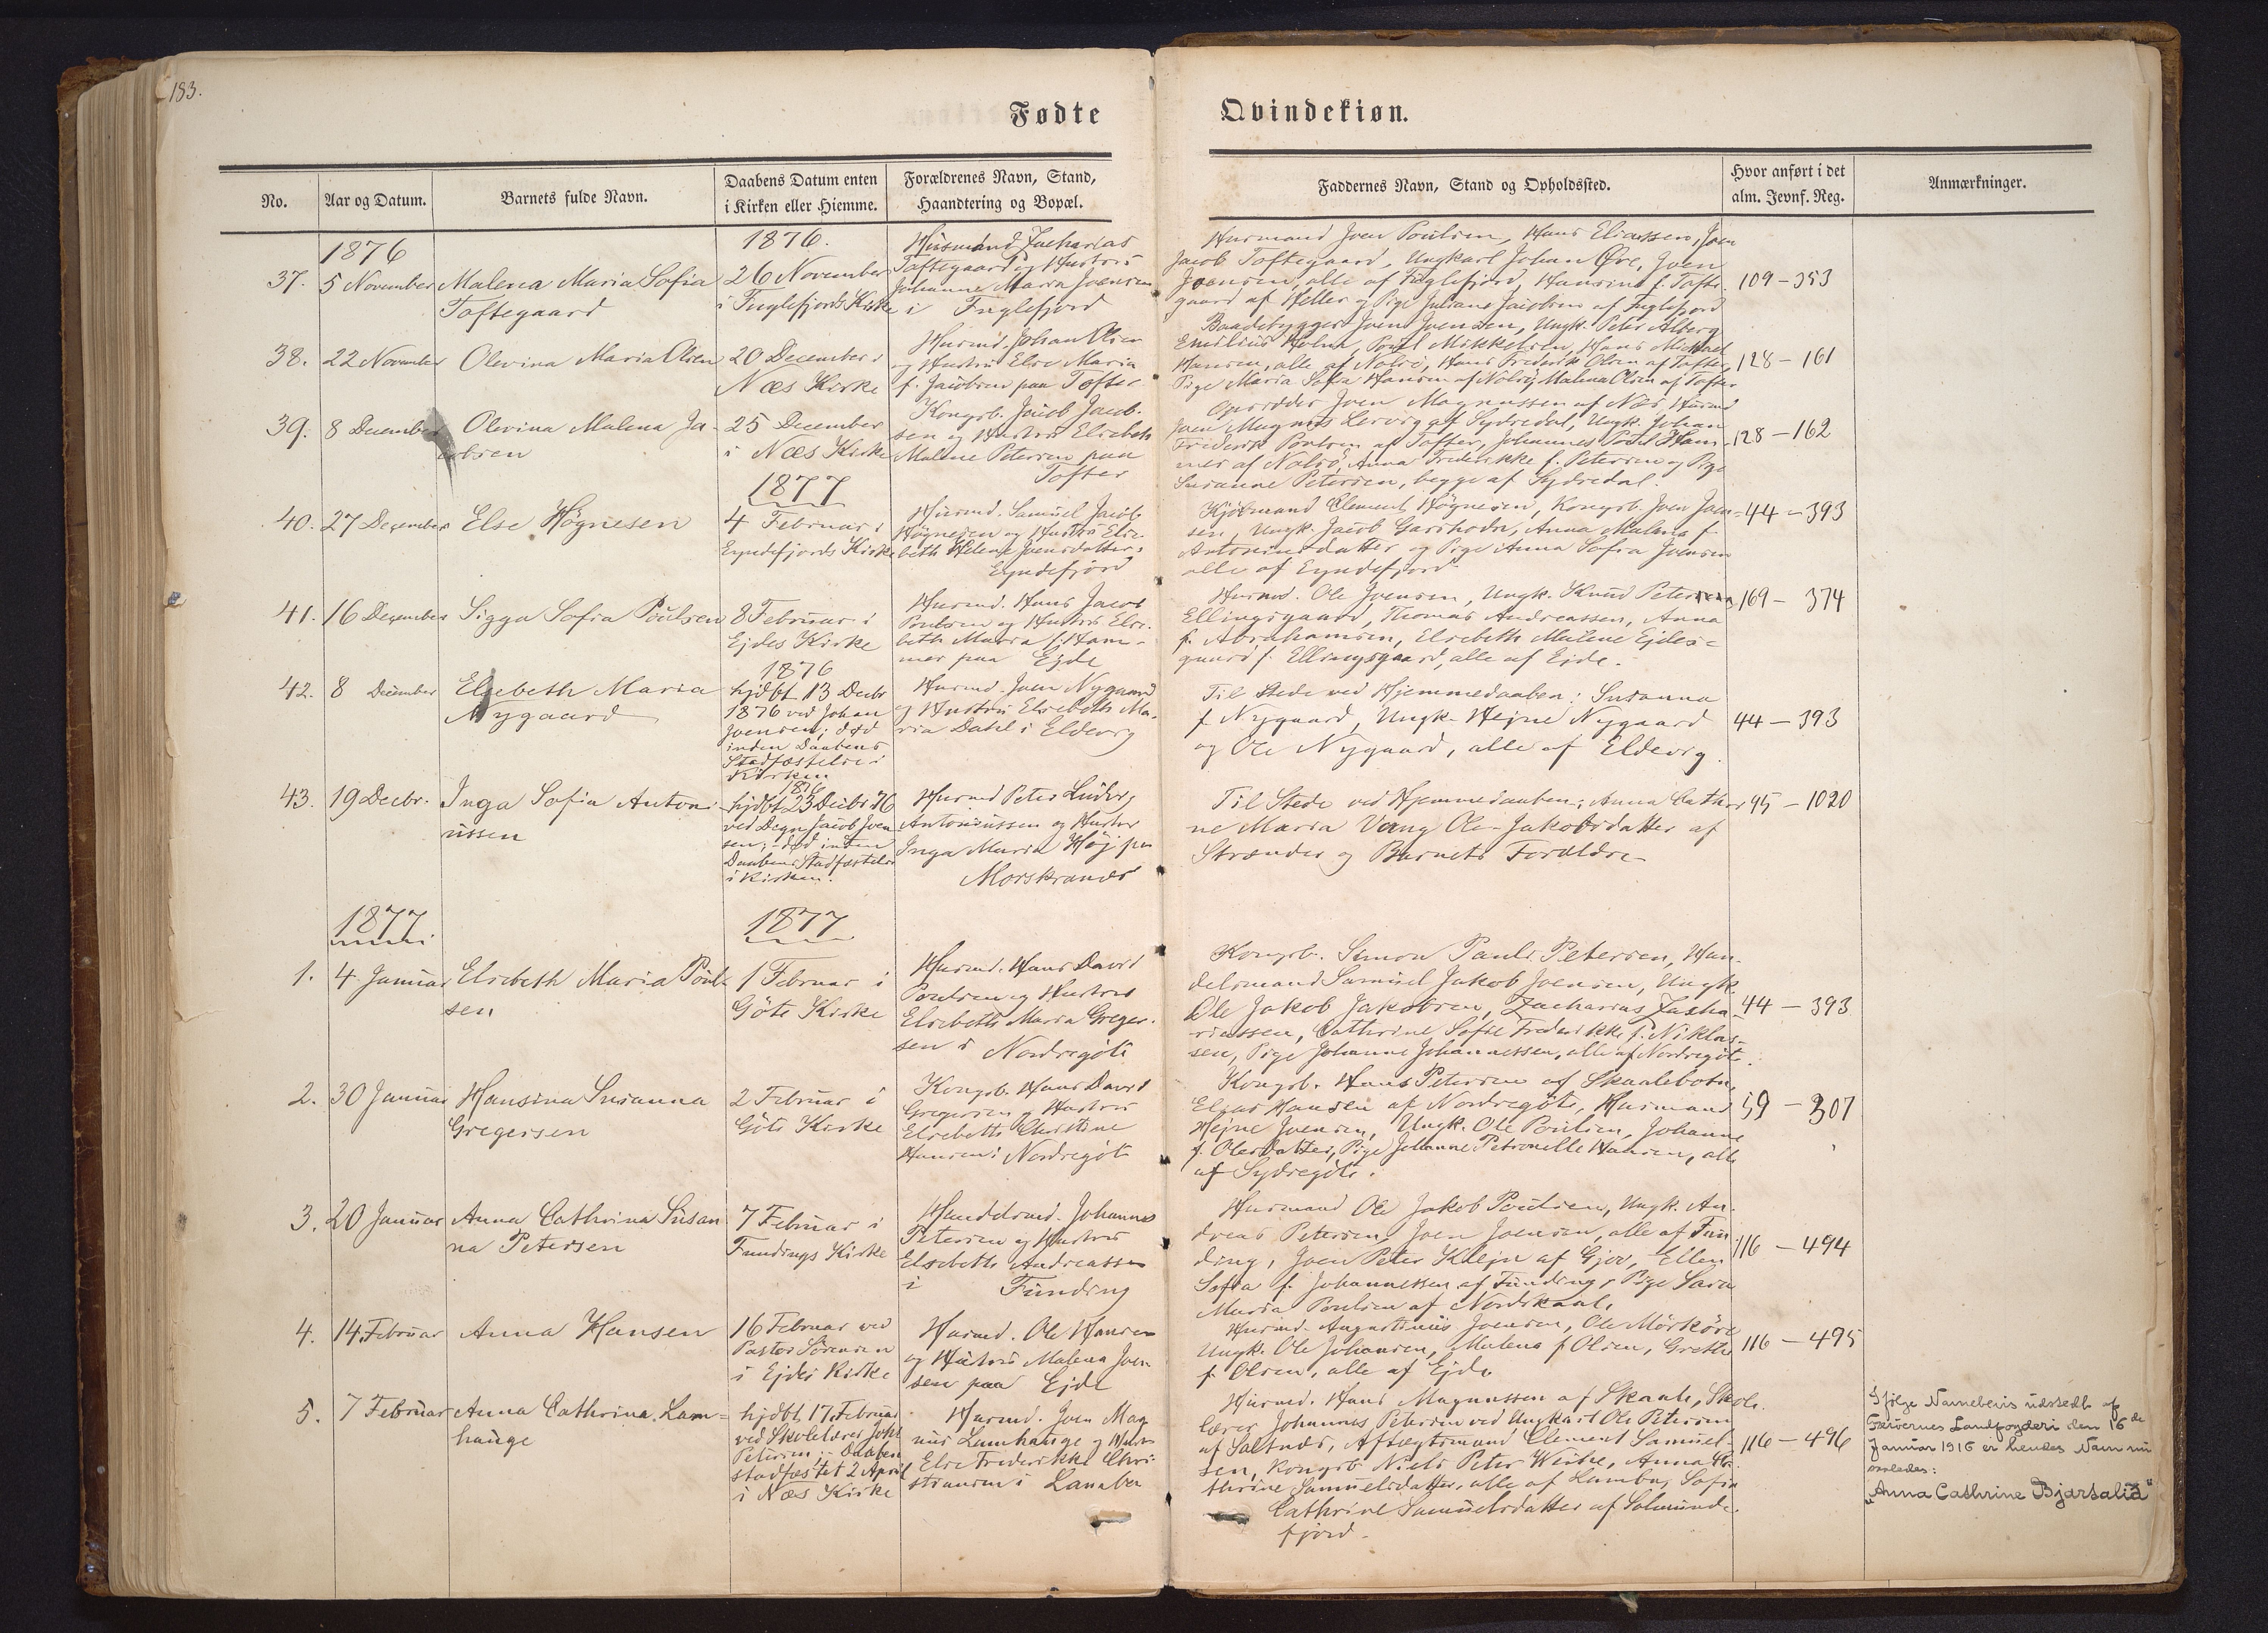 183.
Fødte
Qvindekiøn.
No.
Aar og Datum.
Barnets fulde Navn.
Daabens Datum enten
i Kirken eller Hiemme.
Forældrenes Navn, Stand,
Haandtering og Bopæl.
Faddernes Navn, Stand og Opholdssted.
Hvor anført i det
alm. Jevnf. Reg.
Anmærkninger.
1876
1876.
37.
5 November
Malena Maria Sofia
Toftegaard
26 November
i Fuglefjords Kirke
Husmand Zacharias
Toftegaard og Hustru
Johanne Maria Joensen
i Fuglefjord
Husmand Joen Poulsen, Hans Eliassen, Joen
Jacob Toftegaard, Ungkarl Johan Øre, Joen
Joensen, alle af Fuglefjord, Hansine f. Tofte-
gaard af Heller og Pige Juliane Jacobsen af Fuglefjord
109 - 353
38.
22 November
Olevina Maria Olsen
20 December i
Næs Kirke
Husmd. Johan Olsen
og Hustru Else Maria
f. Jacobsen paa Tofter
Baadebygger Joen Joensen, Ungk. Peter Alberg
Emilius Holm, Poul Mikkelsen, Hans Michael
Hansen, alle af Nolsø, Hans Frederik Olsen af Tofter,
Pige Maria Sofia Hansen af Nolsø, Malena Olsen af Tofter
128 - 161
39.
8 December
Olevina Malena Ja-
cobsen
25 December
i Næs Kirke
Kongsb. Jacob Jacob-
sen og Hustru Elsebeth
Malene Petersen paa
Tofter
Opsidder Joen Magnussen af Næs, Husmd
Joen Magnus Lervig af Sydredal, Ungk. Johan
Frederik Poulsen af Tofter, Johannes Poul Ham-
mer af Nolsø, Anna Frederikke f. Petersen og Pige
Susanne Petersen, begge af Sydredal.
128 - 162
1877
40.
27 December
Else Högnesen
4 Februar i
Eyndefjords Kirke
Husmd. Samuel Jacob
Högnesen og Hustru Else-
beth Helene Joensdatter i
Eyndefjord
Kjöbmand Clement Högnesen, Kongsb. Joen Joen-
sen, Ungk. Jacob Garshodn, Anna Malena f.
Antoniusdatter og Pige Anna Sofia Joensen
alle af Eyndefjord
44 - 393
41.
16 December
Sigga Sofia Poulsen
8 Februar i
Ejdes Kirke
Husmd. Hans Jacob
Poulsen og Hustru Else-
beth Maria f. Ham-
mer paa Ejde
Husmd. Ole Joensen, Ungk. Knud Petersen
Ellingsgaard, Thomas Andreassen, Anna
f. Abrahamsen, Elsebeth Malene Ejdes-
gaard f. Ellingsgaard, alle af Ejde.
169 - 374
42.
8 December
Elsebeth Maria
Nygaard
1876
hjdbt 13 Decbr
1876 ved Johan
Joensen; död
inden Daabens
Stadfæstelse i
Kirken
Husmd. Joen Nygaard
og Hustru Elsebeth Ma-
ria Dahl i Eldevig
Til Stede ved Hjemmedaaben: Susanna
f. Nygaard, Ungk. Hejne Nygaard
og Ole Nygaard, alle af Eldevig
44 - 393
43.
19 Decbr.
Inga Sofia Anton-
iussen
1876
hjdbt 23 Decbr 76
ved Degn Jacob Joen-
sen; död inden
Daabens Stadfæstelse
i Kirken.
Husmd Peter Ludvig
Antoniussen og Hustru
Inga Maria Höj paa
Morskranes
Til Stede ved Hjemmedaaben: Anna Cathri-
ne Maria Vang Ole Jakobsdatter af
Strænder og Barnets Forældre
95 - 1020
1877
1877
1.
4. Januar
Elsebeth Maria Poul-
sen
1 Februar i
Göte Kirke
Husmd. Hans David
Poulsen og Hustru
Elsebeth Maria Greger-
sen i Nordregöte
Kongsb. Simon Pauli Petersen, Han-
delsmand Samuel Jakob Joensen, Ungk
Ole Jakob Jakobsen, Zacharias Zacha-
riassen, Cathrine Sofie Frederikke f. Niklas-
sen, Pige Johanne Johannessen, alle af Nordregöte.
44 - 393
2.
30 Januar
Hansina Susanna
Gregersen
2 Februar i
Göte Kirke
Kongsb. Hans David
Gregersen og Hustru
Elsebeth Christine
Hansen i Nordregöte
Kongsb. Hans Petersen af Skaalebotn,
Elias Hansen af Nordregöte, Husmand
Hejne Joensen, Ungk. Ole Poulsen, Johanne
f. Olesdatter, Pige Johanne Petronelle Hansen, alle
af Sydregöte.
59 - 307
3.
20 Januar
Anna Cathrina Susan
na Petersen
7 Februar i
Fundings Kirke
Handelsmd. Johannes
Petersen og Hustru
Elsebeth Andreassen
i Funding
Husmand Ole Jakob Poulsen, Ungk. An-
dreas Petersen, Joen Joensen, alle af Fun-
ding, Joen Peter Klejn af Gjov, Ellen
Sofia f. Johannessen af Funding, Pige Sara
Maria Poulsen af Nordskaale
116 - 494
4.
14. Februar
Anna Hansen
16 Februar ved
Pastor Sörensen
i Ejdes Kirke
Husmd. Ole Hansen
og Hustru Malena Joen-
sen paa Ejde
Husmd. Augustinus Joensen, Ole Mörköre
Ungk. Ole Johansen, Malena f. Olsen, Grethe
f. Olsen, alle af Ejde
116 - 495
5.
7 Februar
Anna Cathrina Lam-
hauge
hjdbt 17. Februar
ved Skolelærer Johs
Petersen; Daaben
stadfæstet 2 April
i Næs Kirke
Husmd. Joen Mag
nus Lamhauge og Hustru
Else Frederikke Chri-
stiansen i Lamben
Husmd. Hans Magnussen af Skaale, Skole-
lærer Johannes Petersen ved Ungkarl Ole Petersen
af Saltnæs, Aftægtsmand Clement Samuel-
sen, Kongsb Niels Peter Weihe, Anna Ca-
thrine Samuelsdatter, alle af Lamba, Sofia
Cathrine Samuelsdatter af Solmunde-
fjord.
116 - 496
Ifölge Navnebevis udstedt af
Færöernes Landfogderi den 16de
Januar 1916 er hendes Navn nu
saaledes:
"Anna Cathrine Bjarsalið"